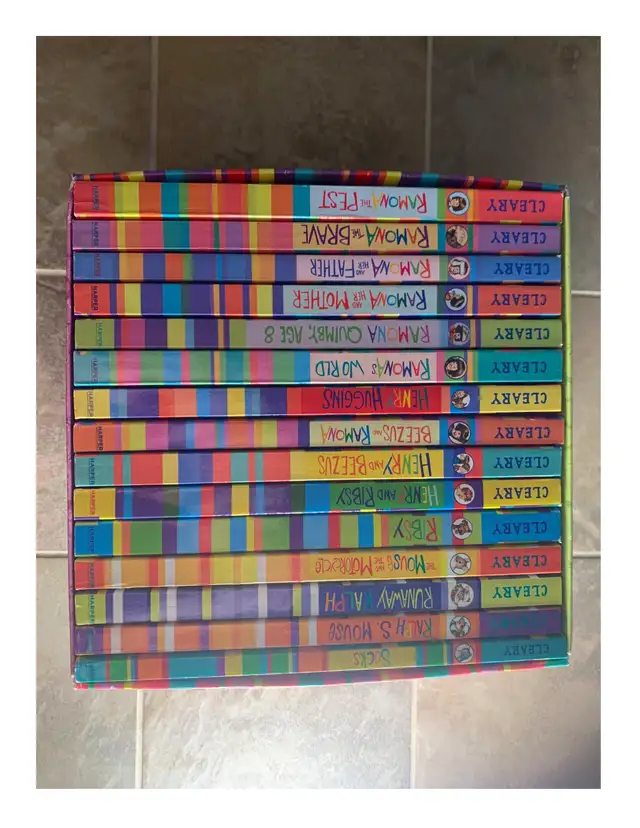 CLEARY SOCKS HARPER
CLEARY RALPH S. MOUSE HARPER
CLEARY RUNAWAY RALPH HARPER
CLEARY THE MOUSE AND THE MOTORCYCLE HARPER
CLEARY RIBSY HARPER
CLEARY HENRY AND RIBSY HARPER
CLEARY HENRY AND BEEZUS HARPER
CLEARY BEEZUS AND RAMONA HARPER
CLEARY HENRY HUGGINS HARPER
CLEARY RAMONA'S WORLD HARPER
CLEARY RAMONA QUIMBY, AGE 8 HARPER
CLEARY RAMONA AND HER MOTHER HARPER
CLEARY RAMONA AND HER FATHER HARPER
CLEARY RAMONA THE BRAVE HARPER
CLEARY RAMONA THE PEST HARPER